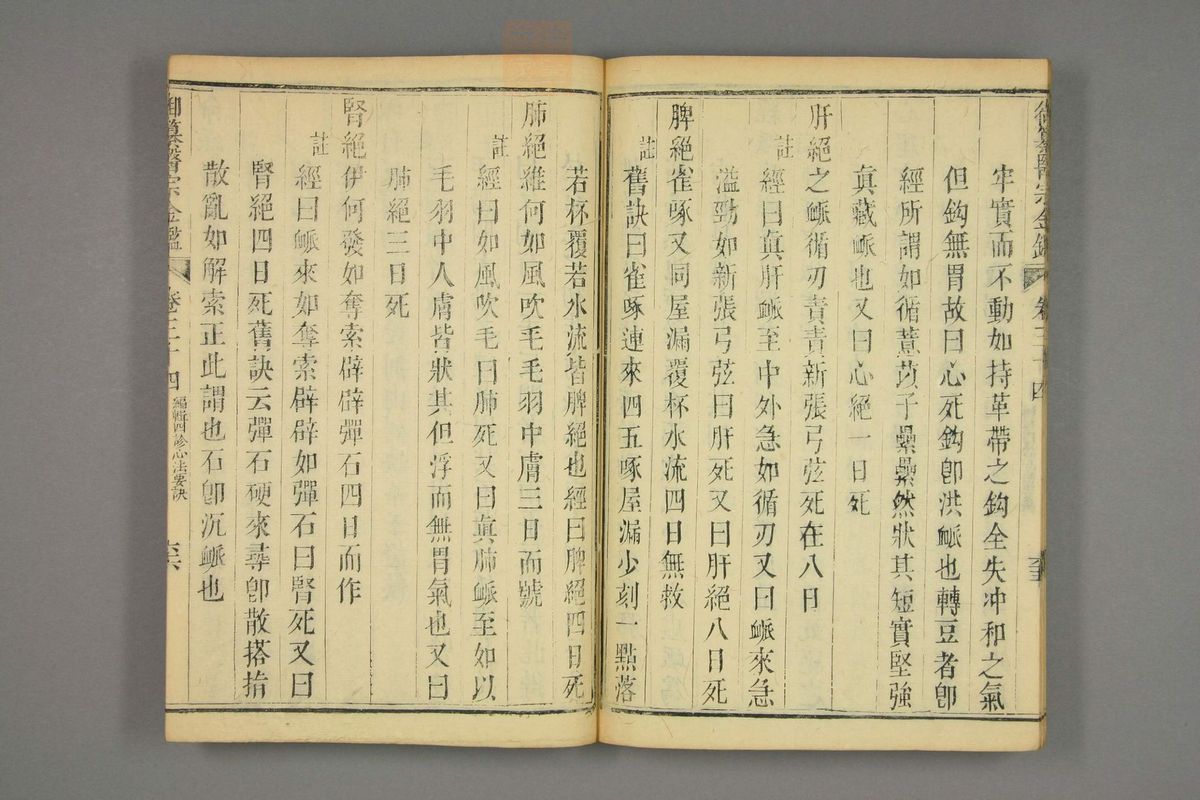 御纂醫宗金鑑 卷三十四
牢實而不動如持革帶之鈎全失冲和之氣
但鈎無胃故曰心死鈎卽洪䘑也轉豆者卽
經所謂如循薏苡子纍纍然狀其短實堅強
眞藏䘑也又曰心絕一日死
肝絕之䘑循刃責責新張弓弦死在八日
註 經曰眞肝䘑至中外急如循刃又曰䘑來急
溢勁如新張弓弦曰肝死又曰肝絕八日死
脾絕雀啄又同屋漏覆杯水流四日無救
註 舊訣曰雀啄連來四五啄屋漏少刻一點落
若杯覆若水流皆脾絕也經曰脾絕四日死
肺絕維何如風吹毛毛羽中膚三日而號
註 經曰如風吹毛曰肺死又曰眞肺䘑至如以
毛羽中人膚皆狀其但浮而無胃氣也又曰
肺絕三日死
腎絕伊何發如奪索辟辟彈石四日而作
註 經曰䘑來如奪索辟辟如彈石曰腎死又曰
腎絕四日死舊訣云彈石硬來尋卽散搭指
散亂如解索正此謂也石卽沉䘑也
御纂醫宗金鑑 卷三十四 編輯四診心法要訣